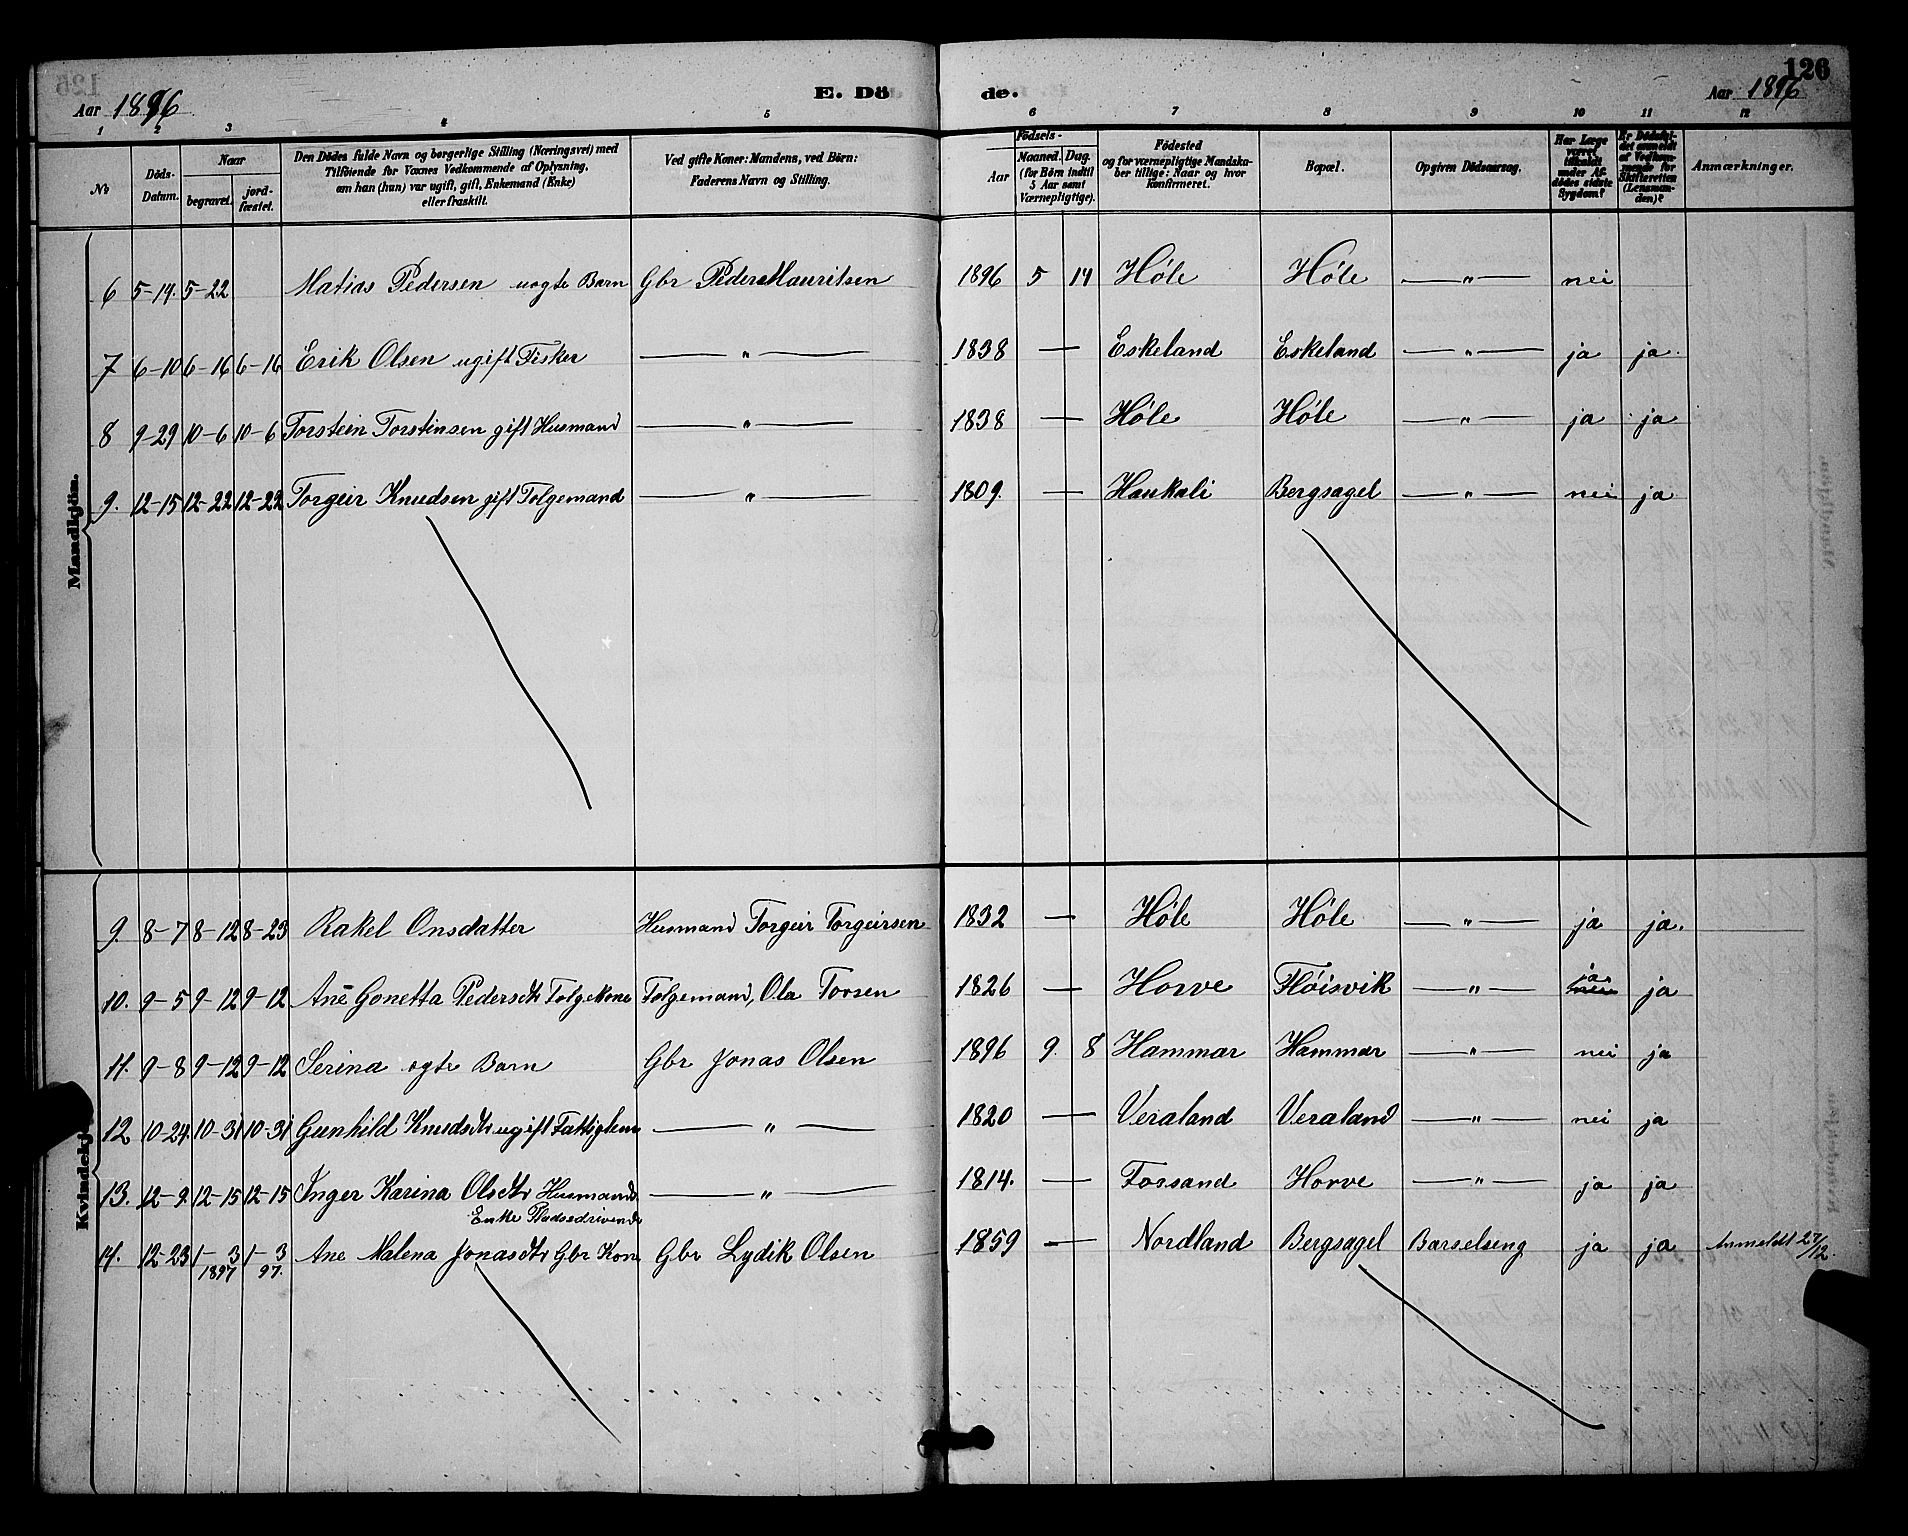 Aar 1896 E. Dö de. Aar 1896 126
1 2 3 4 5 6 7 8 9 10 11 12
No
Döds-Datum.
Naar
begravet.
jord-fæstet.
Den Dödes fulde Navn og borgerlige Stilling (Næringsvei) med
Tilföiende for Voxnes Vedkommende af Oplysning,
om han (hun) var ugift, gift, Enkemand (Enke)
eller fraskilt.
Ved gifte Koner: Mandens, ved Börn:
Faderens Navn og Stilling.
Födsels-
Aar
Maaned. Dag.
(for Börn indtil
5 Aar samt
Værnepligtige).
Födested
og for værnepligtige Mandska-
ber tillige: Naar og hvor
konfirmeret.
Bopæl.
Opgiven Dödsaarsag.
Har Læge
været
tilkaldt
under Af-
dödes sidste
Sygdom?
Er Dödsfal-
det anmeldt
af Vedkom-
mende for
Skifteretten
(Lensman-
den)?
Anmærkninger.
Mandkjön.
6 5-14. 5-22 Matias Pedersen uægte Barn Gbr Peder Mauritsen 1896 5 14 Høle Høle — " — nei
7 6-10 6-16 6-16 Erik Olsen ugift Fisker — " — 1838 — Eskeland Eskeland — " — ja ja.
8 9-29 10-6 10-6 Torstein Torstinsen gift Husmand — " — 1838 — Høle Høle — " — ja ja
9. 12-15 12-22 12-22 Torgeir Knudsen gift Folgemand — " — 1809. — Haukali Bergsagel — " — nei ja
Kvindekj
9. 8-7 8-12 8-23 Rakel Onsdatter Husmand Torgeir Torgeirsen 1832 — Høle Høle — " — ja ja.
10. 9-5 9-12 9-12 Ane Gonetta Pedersdtr Folgekone Folgemand, Ola Torsen 1826 — Horve Fløisvik — " — nei ja ja
11. 9-8 9-12 9-12 Serina ægte Barn Gbr Jonas Olsen 1896 9. 8 Hammar Hammar — " — nei ja
12 10-24. 10-31 10-31 Gunhild Knudsdtr ugift Fattiglem — " — 1820 — Veraland Veraland — " — nei ja
13. 12-9. 12-15 12-15 Inger Karina Olsdtr Husmands — " — 1814. — Forsand Horve — " — ja ja
Enke Pladsedrivende
14. 12-23 1-3 1897 1-3 97. Ane Malena Jonasdtr Gbr Kone Gbr Lydik Olsen 1859 — Nordland Bergsagel Barselseng ja ja Anmeldt 27/12.